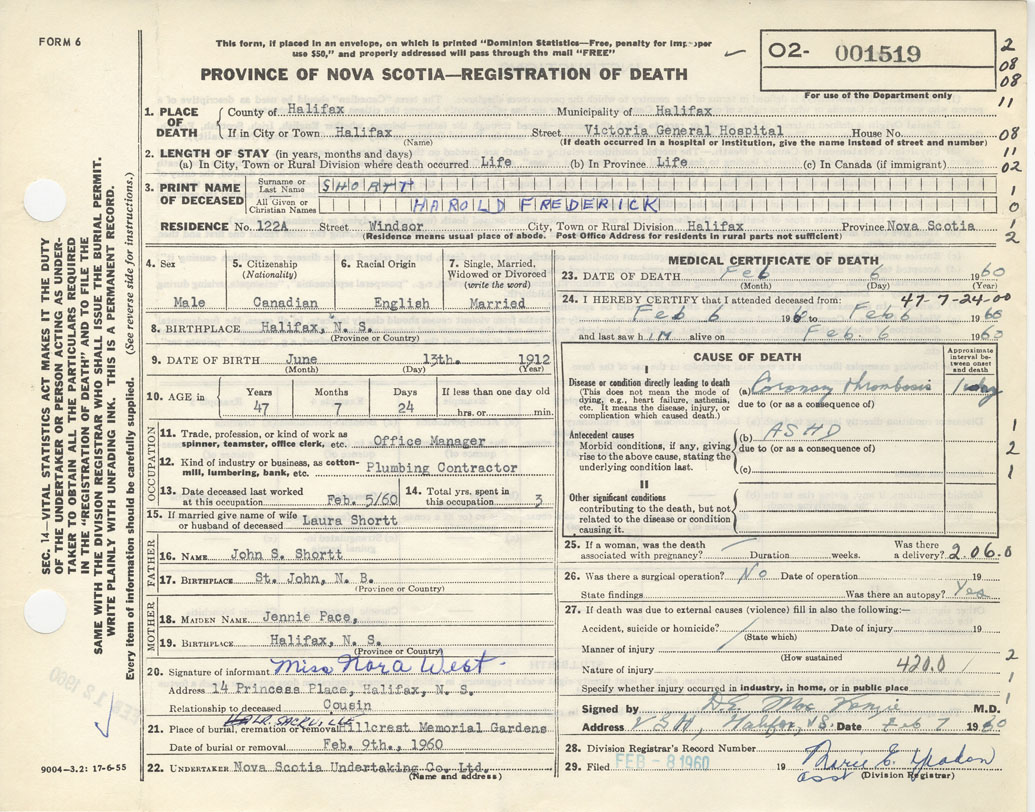 FORM 6
This form, if placed in an envelope, on which is printed "Dominion Statistics—Free, penalty for improper
use $50," and properly addressed will pass through the mail "FREE"
PROVINCE OF NOVA SCOTIA—REGISTRATION OF DEATH
O2- 001519
For use of the Department only
2
08
08
11
1. PLACE OF DEATH
County of Halifax Municipality of Halifax
If in City or Town Halifax Street Victoria General Hospital House No.
(Name) (If death occurred in a hospital or Institution, give the name instead of street and number)
08
11
02
2. LENGTH OF STAY (in years, months and days)
(a) In City, Town or Rural Division where death occurred Life (b) In Province Life (c) In Canada (if immigrant)
3. PRINT NAME OF DECEASED
Surname or Last Name SHORTT
All Given or Christian Names HAROLD FREDERICK
1
0
1
2
RESIDENCE No. 122A Street Windsor City, Town or Rural Division Halifax Province Nova Scotia
(Residence means usual place of abode. Post Office Address for residents in rural parts not sufficient)
4. Sex 5. Citizenship (Nationality) 6. Racial Origin 7. Single, Married, Widowed or Divorced (write the word)
Male Canadian English Married
8. BIRTHPLACE Halifax, N. S.
(Province or Country)
9. DATE OF BIRTH June 13th. 1912
(Month) (Day) (Year)
10. AGE in Years Months Days If less than one day old
47 7 24 hrs. or min.
OCCUPATION
11. Trade, profession, or kind of work as spinner, teamster, office clerk, etc. Office Manager
12. Kind of industry or business, as cotton-mill, lumbering, bank, etc. Plumbing Contractor
13. Date deceased last worked at this occupation Feb. 5/60 14. Total yrs. spent in this occupation 3
15. If married give name of wife or husband of deceased Laura Shortt
FATHER
16. NAME John S. Shortt
17. BIRTHPLACE St. John, N. B.
(Province or Country)
MOTHER
18. MAIDEN NAME Jennie Pace,
19. BIRTHPLACE Halifax, N. S.
(Province or Country)
20. Signature of informant Miss Nora West
Address 14 Princess Place, Halifax, N. S.
Relationship to deceased Cousin
SACKVILLE
21. Place of burial, cremation or removal Hillcrest Memorial Gardens
Date of burial or removal Feb. 9th., 1960
22. UNDERTAKER Nova Scotia Undertaking Co. Ltd.
(Name and address)
MEDICAL CERTIFICATE OF DEATH
23. DATE OF DEATH Feb 6 1960
(Month) (Day) (Year)
47-7-24-00
24. I HEREBY CERTIFY that I attended deceased from:
Feb 6 1960 to Feb 6 1960
and last saw him alive on Feb. 6 1960
CAUSE OF DEATH
Approximate interval between onset and death
I
Disease or condition directly leading to death (a) Coronary thrombosis 1 day
(This does not mean the mode of dying, e.g., heart failure, asthenia, etc. It means the disease, injury, or complication which caused death.)
due to (or as a consequence of)
Antecedent causes (b) ASHD
Morbid conditions, if any, giving rise to the above cause, stating the underlying condition last.
due to (or as a consequence of)
(c)
1
2
1
II
Other significant conditions
contributing to the death, but not related to the disease or condition causing it.
25. If a woman, was the death associated with pregnancy? Duration weeks. Was there a delivery? 2.06.0
26. Was there a surgical operation? No Date of operation 19
State findings Was there an autopsy? Yes
27. If death was due to external causes (violence) fill in also the following:—
Accident, suicide or homicide? Date of injury 19
(State which)
Manner of injury
(How sustained)
Nature of injury 420.0 1
2
1
Specify whether injury occurred in industry, in home, or in public place
Signed by D.E. MacKenzie M.D.
Address V.G.H., Halifax, N.S. Date Feb 7 1960
28. Division Registrar's Record Number
29. Filed FEB - 8 1960 19
Asst (Division Registrar)
SEC. 14—VITAL STATISTICS ACT MAKES IT THE DUTY
OF THE UNDERTAKER OR PERSON ACTING AS UNDER-
TAKER TO OBTAIN ALL THE PARTICULARS REQUIRED
IN THE "REGISTRATION OF DEATH" AND TO FILE THE
SAME WITH THE DIVISION REGISTRAR WHO SHALL ISSUE THE BURIAL PERMIT.
WRITE PLAINLY WITH UNFADING INK. THIS IS A PERMANENT RECORD.
Every item of information should be carefully supplied. (See reverse side for instructions.)
FEB 12 1960
9004—3.2: 17-6-55